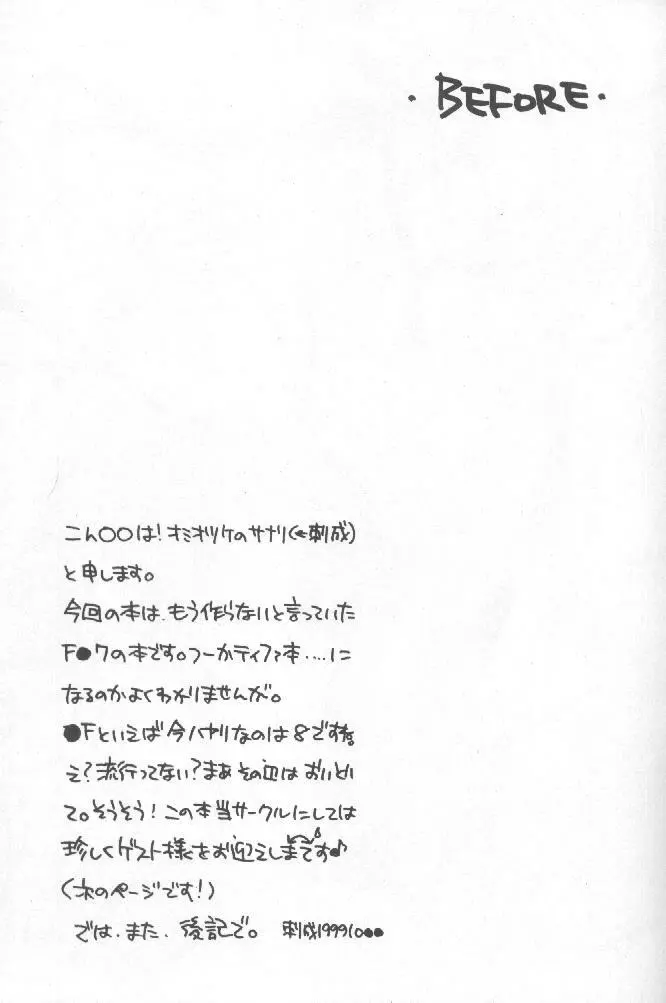 ・BEFORE・
こん〇〇は!オミオツケのサナリ(←刺成)
と申します。
今回の本は、もう作らないと言っていた
F●7の本です。つーかティファ本‥‥に
なるのかよくわかりませんが。
●Fといえば今ハヤリなのは8ですね
え?流行ってない?まぁその辺はおいとい
て。そうそう!この本当サークルにしては
珍しくゲスト様をお迎えしまてす♪
(次のページです!)
では、また、後記で。 刺成199910●●